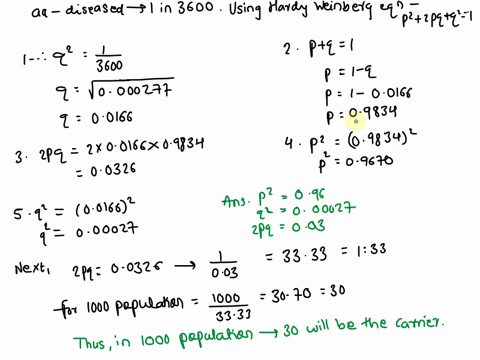 aa - diseased → 1 in 3600. Using Hardy Weinberg eqn -
p²+2pq+q²=1
1-∴ q² = 1/3600
q = √0.000277
q = 0.0166
2. p+q = 1
p = 1-q
p = 1 - 0.0166
p = 0.9834
3. 2pq = 2 × 0.0166 × 0.9834
= 0.0326
4. p² = (0.9834)²
p² = 0.9670
5. q² = (0.0166)²
q² = 0.00027
Ans. p² = 0.96
q² = 0.00027
2pq = 0.03
Next, 2pq = 0.0326 → 1/0.03 = 33.33 = 1:33
for 1000 population = 1000/33.33 = 30.70 = 30
Thus, in 1000 population → 30 will be the carrier.